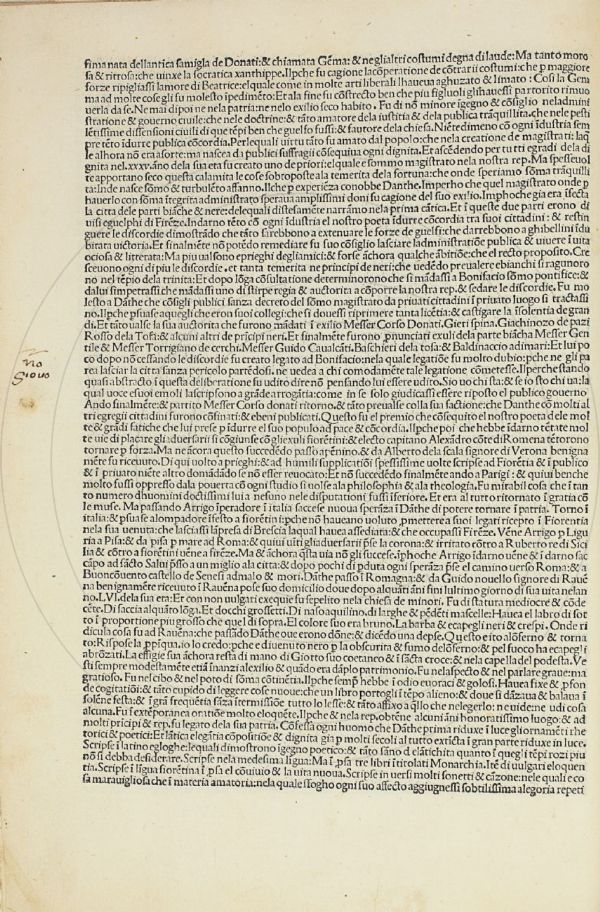 sima nata dellantica famiglia de Donati: & chiamata Gēma: & neglialtri costumi degna di laude: Ma tanto moro
sa & ritrosa: che uinxe la socratica xanthippe. Ilpche fu cagione lacōperatione de cōtrarii costumi: che p maggiore
forze ripigliassi lamore di Beatrice: elquale come in molte arti liberali lhaueua aghuzato & limato: Cosi la Gem
ma ad molte cose gli fu molesto ipedimēto: Et ala fine fu cōstrecto ben che piu figliuoli glihauessi partorito rimuo
uerla da se. Ne mai dipoi ne nela patria: ne nelo exilio seco habito. Fu di nō minore igegno & cōsiglio neladmini
stratione & gouerno ciuile: che nele doctrine: & tāto amatore dela iustitia & dela publica tràquillita. che nele pesti
lētissime dissensioni ciuili di que tēpi ben che guelfo fussi: & fautore dela chiesa. Niētedimeno cō ogni idustria sem
pre tēto idurre publica cōcordia. Perlequali uirtu tāto fu amato dal popolo: che nela creatione de magistrati: laq̄
le alhora nō era asorte: ma nascea da publici suffragii cōseq̄uiua ogni dignita. Et ascēdendo per tutti egradi dela di
gnita nel.xxxv. āno dela sua eta fu creato uno de priori: elquale e sommo magistrato nela nostra rep. Ma spesseuol
te apportano seco questa calamita le cose sobtoposte ala temerita della fortuna: che onde speriamo sōma tràquilli
ta: Inde nasce sōmo & turbulēto affanno. Ilche p experiēza conobbe Danthe. Imperho che quel magistrato onde p
hauerlo con sōma ītegrita administrato speraua amplissimi doni fu cagione del suo exilio. Imphoche gia era isecta
la citta dele parti biāche & nere: delequali distesamēte narrāmo nela prima cātica. Et ī queste due parti erono di
uisi eguelphi di Firēze. Indarno tēto cō ogni idustria el nostro poeta idurre cōcordia tra suoi cittadini: & restin
guere le discordie dimostrādo che tāto sarebbono a extenuare le forze de guelfi: che darebbono a ghibellini idu
bitata uictoria. Et finalmēte nō potēdo remediare fu suo cōsiglio lasciare ladministratiōe publica & uiuere ī uita
ociosa & litterata: Ma piu ualsono eprieghi degliamici: & forse āchora qualche ābitiōe: che el recto proposito. Cre
sceuono ogni di piu le discordie. et tanta temerita ne principi de neri: che uedēdo preualere ebianchi si ragunoro
no nel tēpio dela trinita: Et dopo lōga cōsultatione determinorono che si mādassi a Bonifacio sōmo pontifice: &
dalui simpetrassi che mādassi uno di stirpe regia & auctorita a cōporre la nostra rep. & sedare le discordie. Fu mo
lesto a Dāthe che cōsigli publici sanza decreto del sōmo magistrato da priuati cittadini ī priuato luogo si tractassi
no. Ilpche psuase aquegli che eron suoi collegi: che si douessi riprimere tanta licētia: & castigare la īsolentia de gran
di. Et tāto ualse la sua auctorita che furono mādati ī exilio Messer Corso Donati. Gieri spina. Giachinozo de pazi
Rosso dela Tosa: & alcuni altri de prīcipi neri. Et finalmēte furono pnunciati exuli dela parte biācha Messer Gen
tile & Messer Torrigiano de cerchi. Messer Guido Caualcāti. Baschieri dela tosa: & Baldinaccio adimari: Et lui po
co dopo nō cessando le discordie fu creato legato ad Bonifacio: nela quale legatiōe fu molto dubio: pche ne gli pa
rea lasciar la citta sanza pericolo partēdosi. ne uedea a chi comodamēte tale legatiōe cōmetesse. Ilperche stando
quasi abstracto ī questa deliberatione fu udito dire nō pensando lui essere udito. Sio uo chi sta: & se io sto chi ua: la
qual uoce e suoi emoli lascripsono a grāde arrogātia: come in se solo giudicassi essere riposto el publico gouerno
Ando finalmēte: & partito Messer Corso donati ritorno. & tāto preualse colla sua factione: che Dāthe cō molti al
tri egregii cittadini furono cōfinati: & ebeni publicati. Questo fu el premio che cōsequito el nostro poeta dele mol
te & grādi fatiche che lui prese p idurre el suo populo ad pace & cōcordia. Ilpche poi che hebbe idarno tētate mol
te uie di placare gli aduersarii si cōgiunse cō gli exuli fiorētini: & electo capitano Alexādro cōte di Romena tētorono
tornare p forza. Ma ne ācora questo succedēdo passo apēnino. & da Alberto dela scala signore di Verona benigna
mēte fu riceuuto. Di qui uolto a prieghi: & ad humili supplicatiōi spessissime uolte scripse ad Fiorētia & ī publico
& ī priuato niēte altro domādādo se nō esser reuocato: Et nō succedēdo finalmēte ando a Parigi: & quiui benche
molto fussi oppresso dala pouerta cō ogni studio si uolse ala philosophia & ala theologia. Fu mirabil cosa che ī tan
to numero dhuomini doctissimi lui a nesuno nele disputationi fussi iferiore. Et era al tutto ritornato ī gratia cō
le muse. Ma passando Arrigo īperadore ī italia saccese nuoua speranza ī Dāthe di potere tornare ī patria. Torno ī
italia: & psuase alompadore īfesto a fiorētini: pche nō haueano uoluto pmetterea suoi legati ricepto ī Fiorentia
nela sua uenuta: che lasciassi lāpresa di Brescia laqual haueua assediata: & che occupassi Firēze. Vēne Arrigo p Ligu
ria a Pisa: & da pisa p mare ad Roma: & quiui uiti gliaduersarii pse la corona: & irritato cōtro a Ruberto re di Sici
lia & cōtro a fiorētini uēne a firēze. Ma & āchora q̄sta uia nō gli successe. īphoche Arrigo īdarno uēne & ī darno sac
cāpo ad sācto Salui ꝓsso a un miglio ala citta: & dopo pochi di pduta ogni speraza pse el camino uerso Roma: & a
Buoncōuento castello de Senesi admalo & mori. Dāthe passo ī Romagna: & da Guido nouello signore di Rauē
na benignamēte riceuuto ī Rauēna pose suo domicilio doue dopo alquāti āni fini lultimo giorno di sua uita nelan
no. LVI. dela sua eta: Et con non uulgari exequie fu sepelito nela chiesa de minori. Fu di statura mediocre & cōde
cēte. Di faccia alquāto lōga. Et docchi grossetti. Di naso aquilino. di larghe & pēdēti mascelle: Hauea el labro di sot
to ī proportione piu grosso che quel di sopra. El colore suo era bruno. La barba & ecapegli neri & crespi. Onde ri
dicula cosa fu ad Rauēna: che passādo Dāthe oue erono dōne: & dicēdo una depse. Questo e ito alōferno & torna
to: Rispose la ꝓpiqua. io lo credo: pche e diuenuto nero p la obscurita & fumo delōferno: & pel fuoco ha ecapegli
abrōzati. La effigie sua āchora resta di mano di Giotto suo coetaneo & ī sācta croce: & nela capella del podesta. Ve
sti sempre modestamēte etiā innanzi alexilio & quādo era dāplo patrimonio. Fu nelaspecto & nel parlare graue: ma
gratioso. Fu nel cibo & nel poto di sōma cōtinētia. Ilpche semp̄ hebbe ī odio cuoraci & golosi. Hauea fixe & ꝓfon
de cogitatiōi: & tāto cupido di leggere cose nuoue: che un libro portogli ī tēpo alieno: & doue si dāzaua & balaua ī
solēne festa: & ī grā frequētia sāza itermissiōe tutto lo lesse: & tāto affixo a q̄llo che nelegerlo: ne uide: ne udi cosa
alcuna. Fu ī extēporanea oratiōe molto eloquēte. Ilpche & nela rep. obtēne alcuni āni honoratissimo luogo: & ad
molti prīcipi & rep. fu legato dela sua patria. Cōfessa ogni huomo che Dāthe prima riduxe ī luce gliornamēti rhe
torici & poetici: Et lātica elegātia cōpositiōe & dignita gia p molti secoli al tutto extīcta ī gran parte riduxe in luce.
Scripse ī latino egloghe: lequali dimostrono igegno poetico: & tāto sāno delātichita quanto ī quegli tēpi rozi piu
nō si debba desiderare. Scripse nela medesima ligua: Ma ī ꝓsa tre libri ītitolati Monarchia. Itē di uulgari eloquen
tia. Scripse ī līgua fiorētina ī ꝓsa el cōuiuio & la uita nuoua. Scripse in uersi molti sonetti & cāzone: nele quali e co
sa marauigliosa che ī materia amatoria: nela quale isfogho ogni suo affecto aggiugnessi sobtilissima alegoria repeti